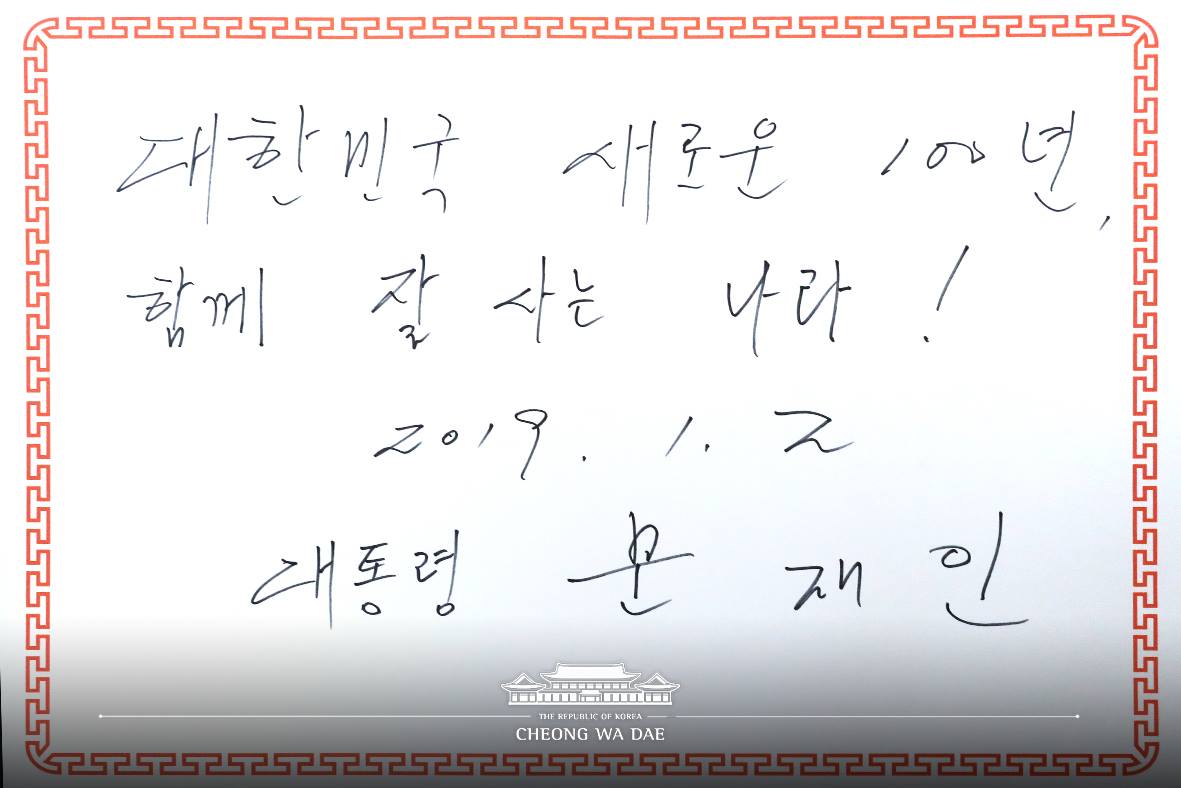 대한민국 새로운 100년,
함께 잘 사는 나라!
2019. 1. 2
대통령 문재인
THE REPUBLIC OF KOREA
CHEONG WA DAE